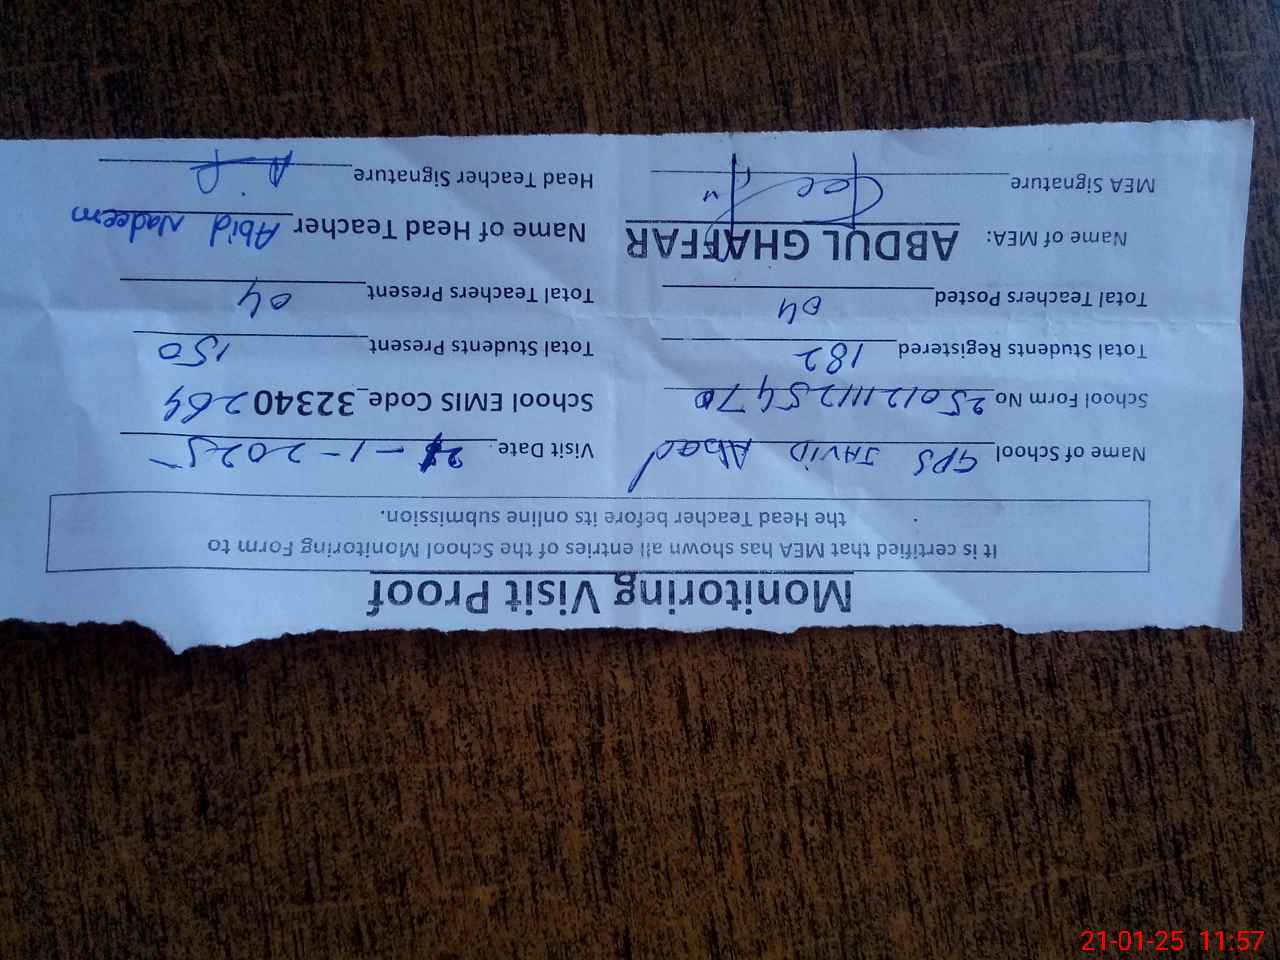 Monitoring Visit Proof
It is certified that MEA has shown all entries of the School Monitoring Form to
the Head Teacher before its online submission.
Name of School GPS JAVID Abad Visit Date 21-1-2025
School Form No 25012111125470 School EMIS Code_32340264
Total Students Registered 182 Total Students Present 150
Total Teachers Posted 04 Total Teachers Present 04
Name of MEA: ABDUL GHAFFAR Name of Head Teacher Abid Nadeem
MEA Signature Head Teacher Signature
21-01-25 11:57